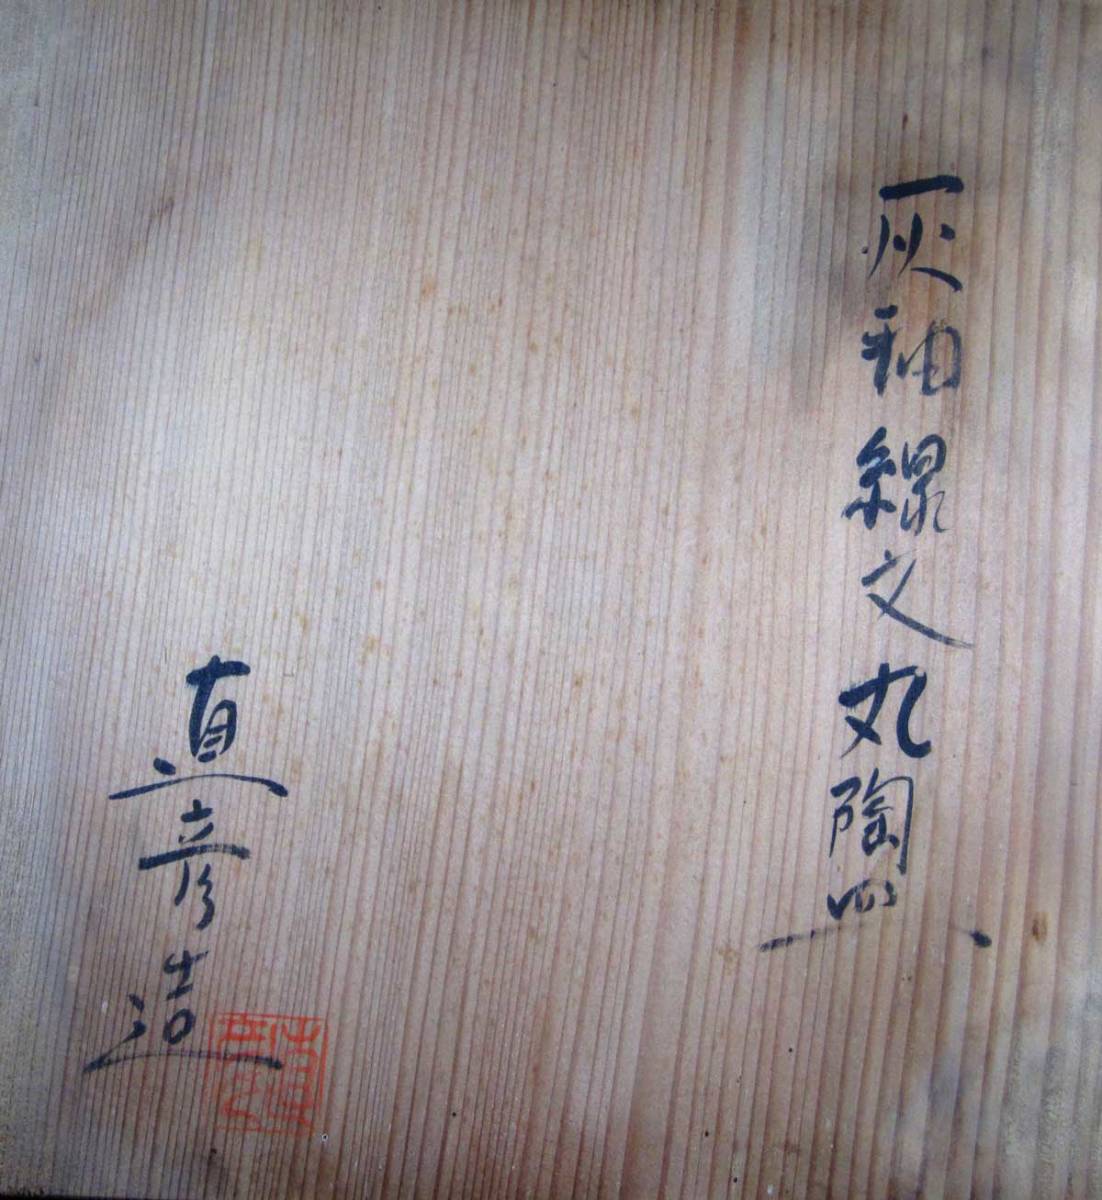 灰釉線文丸陶皿
直彦造
直彦